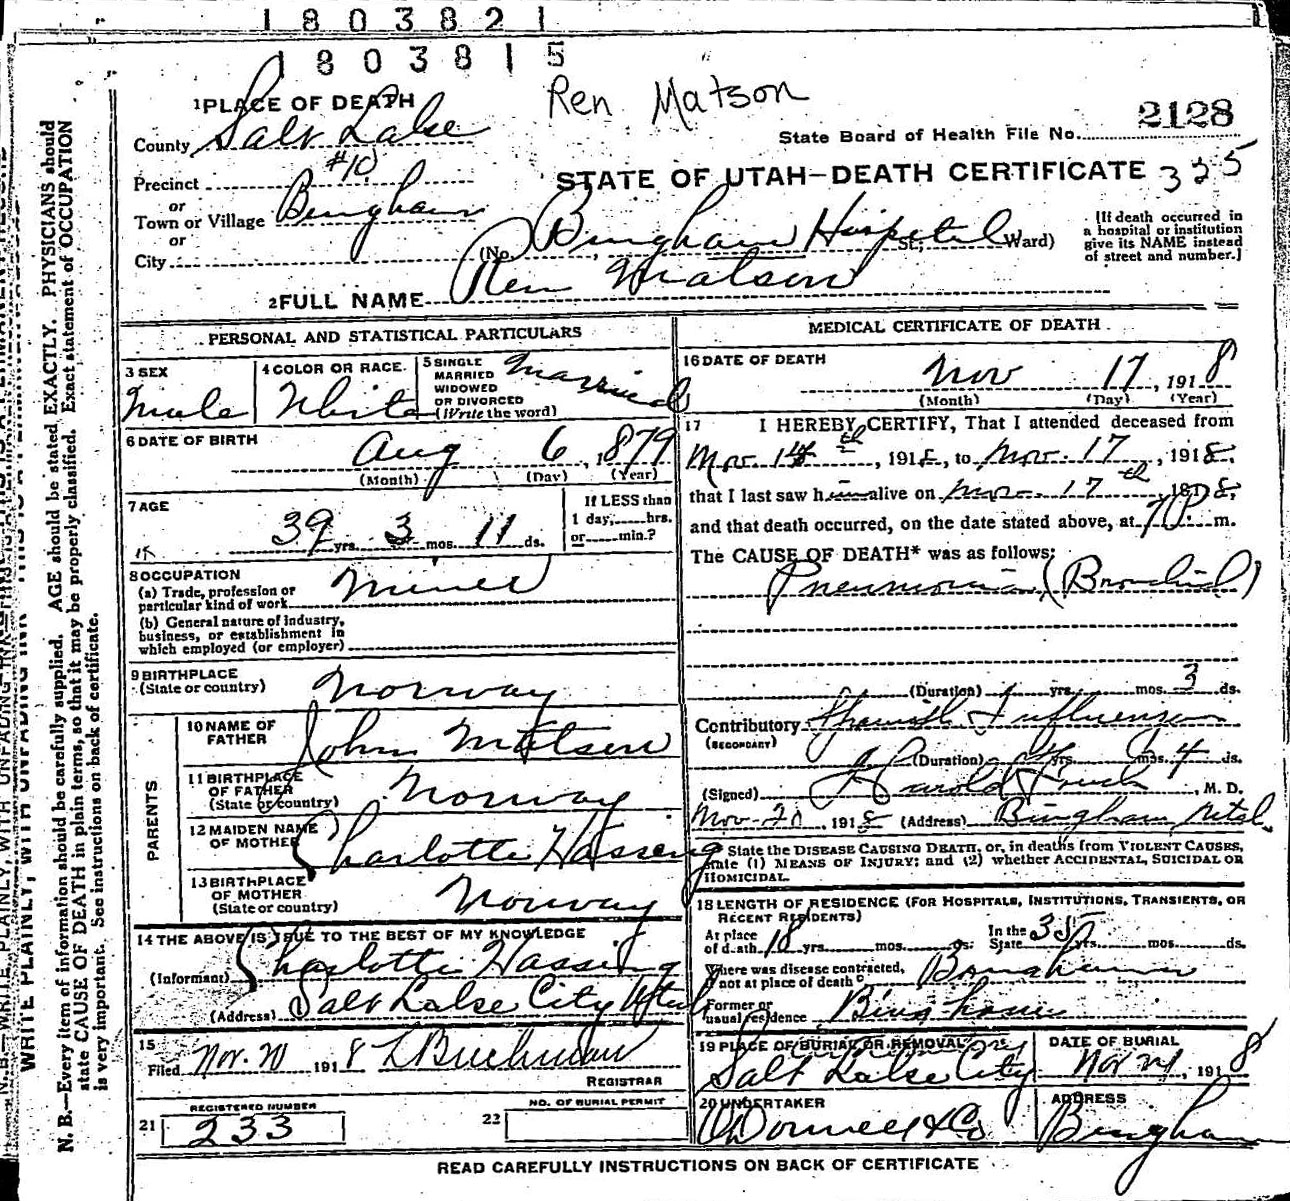 1803821
1803815
Ren Matson
1 PLACE OF DEATH
2128
State Board of Health File No.
County Salt Lake
Precinct #10
STATE OF UTAH—DEATH CERTIFICATE 325
or
Town or Village Bingham
or
City
(No. Bingham Hospital St.; Ward)
[If death occurred in
a hospital or institution
give its NAME instead
of street and number.]
2 FULL NAME Ren Matson
PERSONAL AND STATISTICAL PARTICULARS
3 SEX
Male
4 COLOR OR RACE
White
5 SINGLE
MARRIED
WIDOWED
OR DIVORCED
(Write the word)
Married
6 DATE OF BIRTH
Aug 6, 1879
(Month) (Day) (Year)
7 AGE
39 yrs. 3 mos. 11 ds.
If LESS than
1 day, hrs.
or min.?
8 OCCUPATION
(a) Trade, profession or
particular kind of work Miner
(b) General nature of industry,
business, or establishment in
which employed (or employer)
9 BIRTHPLACE
(State or country) Norway
PARENTS
10 NAME OF
FATHER John Matsen
11 BIRTHPLACE
OF FATHER
(State or country) Norway
12 MAIDEN NAME
OF MOTHER Charlotte Hassing
13 BIRTHPLACE
OF MOTHER
(State or country) Norway
14 THE ABOVE IS TRUE TO THE BEST OF MY KNOWLEDGE
(Informant) Charlotte Hassing
(Address) Salt Lake City Utah
15
Filed Nov. 20 1918 L Buchman
REGISTRAR
REGISTERED NUMBER
21 233
NO. OF BURIAL PERMIT
22
MEDICAL CERTIFICATE OF DEATH
16 DATE OF DEATH
Nov 17, 1918
(Month) (Day) (Year)
17 I HEREBY CERTIFY, That I attended deceased from
Nov. 14th, 1918, to Nov. 17, 1918,
that I last saw him alive on Nov. 17th, 1918,
and that death occurred, on the date stated above, at 7 P. m.
The CAUSE OF DEATH* was as follows:
Pneumonia (Bronchial)
(Duration) yrs. mos. 3 ds.
Contributory Spanish Influenza
(SECONDARY)
(Duration) yrs. mos. 4 ds.
(Signed) Harold, M. D.
Nov. 20, 1918 (Address) Bingham, Utah.
State the DISEASE CAUSING DEATH, or, in deaths from VIOLENT CAUSES,
state (1) MEANS OF INJURY; and (2) whether ACCIDENTAL, SUICIDAL OR
HOMICIDAL.
18 LENGTH OF RESIDENCE (FOR HOSPITALS, INSTITUTIONS, TRANSIENTS, OR
RECENT RESIDENTS)
At place
of death 18 yrs. mos. ds.
In the
State 35 yrs. mos. ds.
Where was disease contracted,
if not at place of death? Bingham
Former or
usual residence Bingham
19 PLACE OF BURIAL OR REMOVAL
Salt Lake City
DATE OF BURIAL
Nov 21, 1918
20 UNDERTAKER
O'Donnell & Co
ADDRESS
Bingham
READ CAREFULLY INSTRUCTIONS ON BACK OF CERTIFICATE
WRITE PLAINLY, WITH UNFADING INK
N. B.—Every item of information should be carefully supplied. AGE should be stated EXACTLY. PHYSICIANS should
state CAUSE OF DEATH in plain terms, so that it may be properly classified. Exact statement of OCCUPATION
is very important. See instructions on back of certificate.